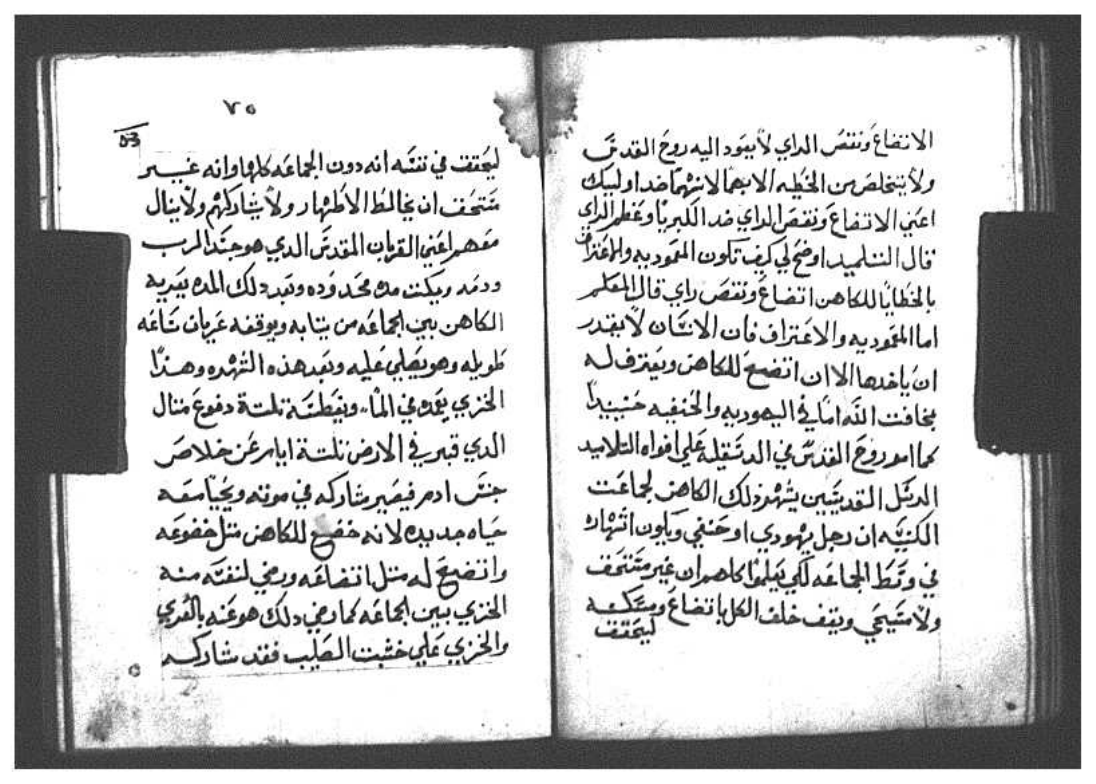 الاتضاع ونقص الراي لا يعود اليه روح القدس
ولا يتخلص من الخطيه الا بهما لانهما ضد اوليك
اعني الاتضاع ونقص الراي ضد الكبريا وعظم الراي
قال التلميد اوضح لي كيف تكون المعموديه والاعتراف
بالخطايا للكاهن اتضاع ونقص راي قال المعلم
اما المعموديه والاعتراف فان الانسان لا يقدر
ان ياخدها الا ان اتضع للكاهن ويعترف له
بمخافت الله اما في اليهوديه والحنيفه حينيدا
كما امر روح القدس في الدسقليه علي افواه التلاميد
الرسل القديسين يشهر دلك الكاهن لجماعت
الكنيسه ان رجل يهودي او حنفي ويكون اشهاره
في وسط الجماعه لكي يعلموا كلهم ان غير مستحق
ولا مسيحي ويقف خلف الكل باتضاع ومسكنه
ليحقق
٧٥
53
ليحقق في نفسه انه دون الجماعه كلها وانه غير
مستحق ان يخالط الاطهار ولا يشاركهم ولا ينال
معهم اعني القربان المقدس الدي هو جسد الرب
ودمه ويمكت مده محدوده وبعد دلك المده يعريه
الكاهن بين الجماعه من تيابه ويوقفه عريان ساعه
طويله وهو يصلي عليه وبعد هذه الشهره وهذا
الخزي يعمده في الماء ويغطسه تلتة دفوع متال
الدي قبر في الارض تلتة ايام عن خلاص
جنس ادم فيصير شاركه في موته ويحيا معه
حياه جديده لانه خضع للكاهن متل خضوعه
واتضع له متل اتضاعه ورضي لنفسه منه
الخزي بين الجماعه كما رضي دلك هو عنه بالعري
والخزي علي خشبت الصليب فقد شاركه